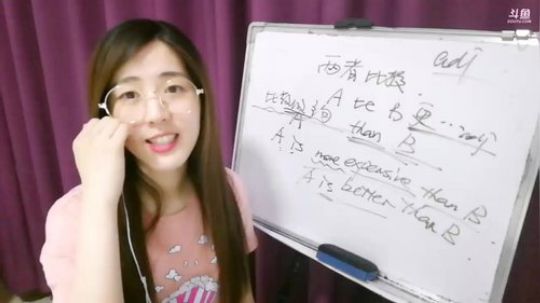 斗鱼
DOUYU.COM
adj
两者比较
A 比 B 更...adj
比较级词
than B
A is more expensive than B
A is better than B